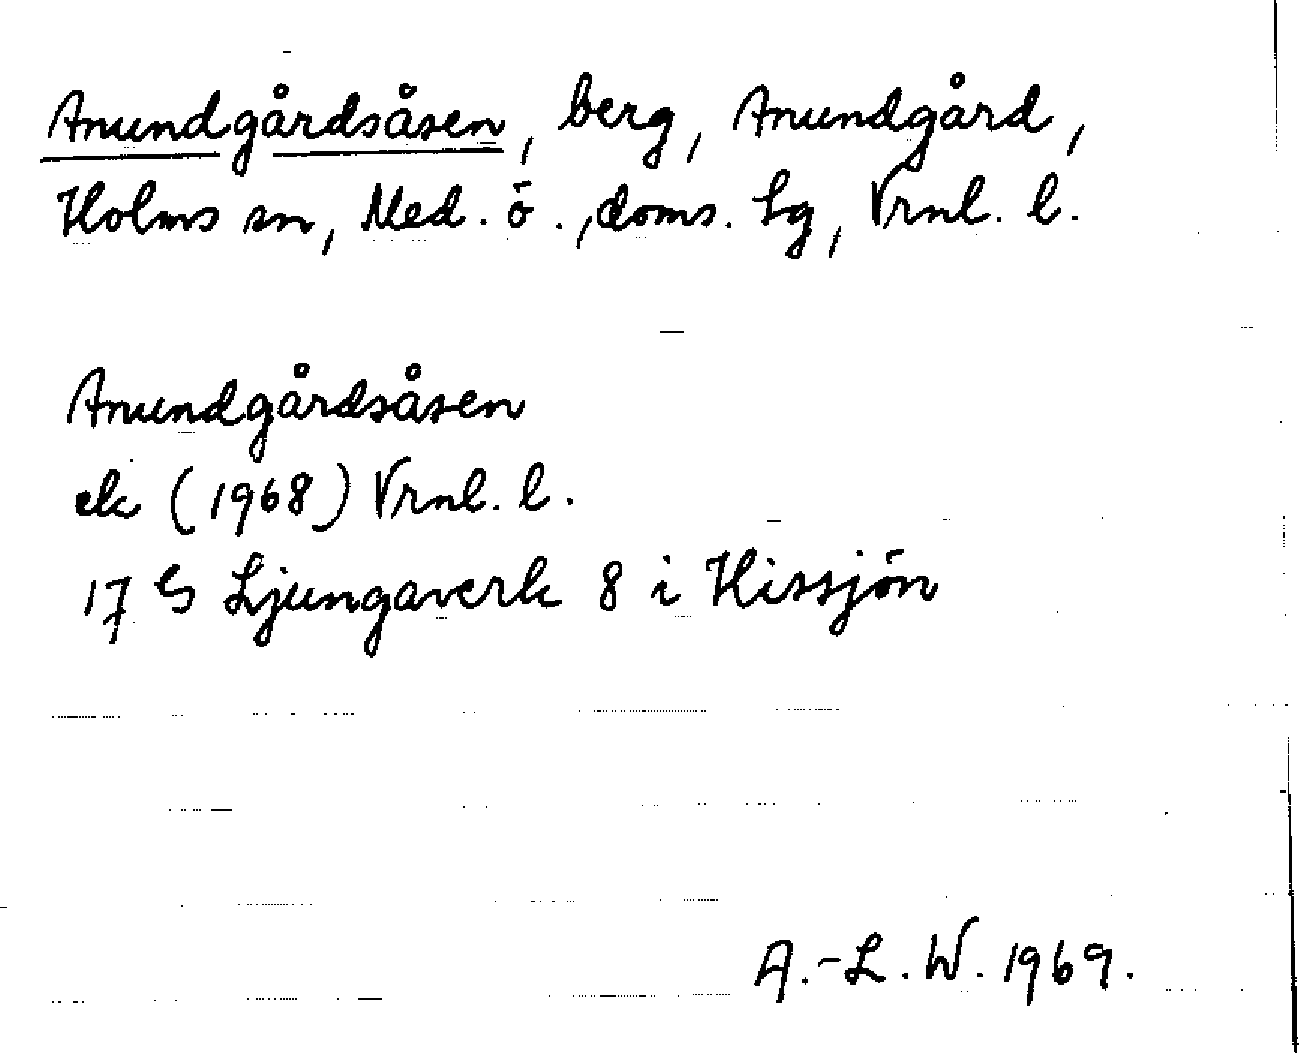 Anundgårdsåsen, berg, Anundgård,
Holms sn, Med. ö., doms. lg, Vrnl. l.
Anundgårdsåsen
ek (1968) Vrnl. l.
17 G Ljungaverk 8 i Hissjön
A.-L. W. 1969.